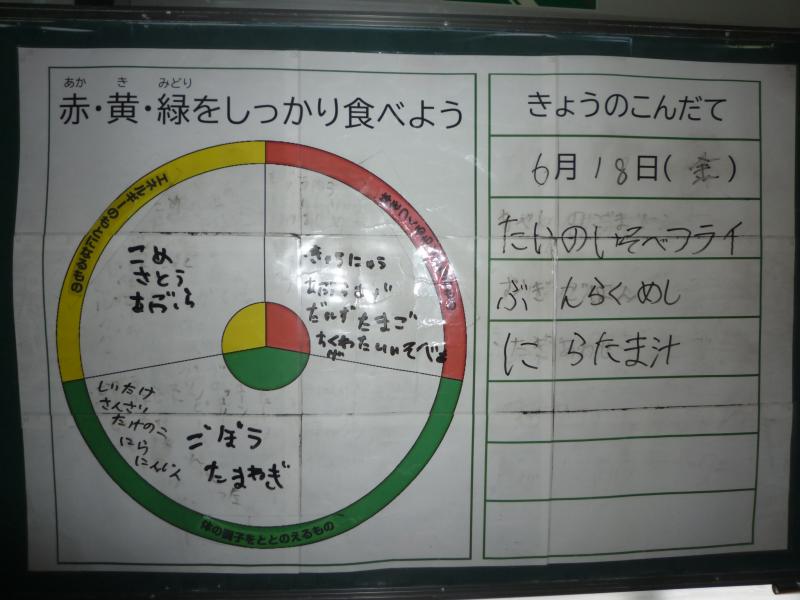 あか き みどり
赤・黄・緑をしっかり食べよう
エネルギーのもとになるもの
こめ
さとう
あぶら
ぎゅうにゅう
あぶらあげ
だいず たまご
ちくわ たいいそべ
しいたけ
さんさい
たけのこ
にら
にんじん
ごぼう
たまねぎ
体の調子をととのえるもの
きょうのこんだて
6月18日(金)
たいのいそべフライ
ぶんらくめし
にらたま汁